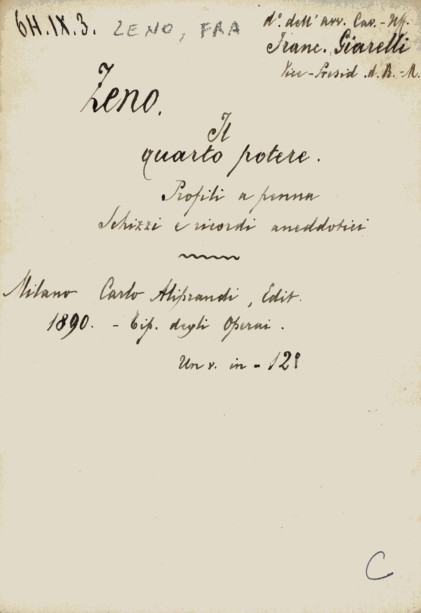 6H.IX.3. ZENO, FRA
d.° dell' avv. Cav.-Uff.
Franc. Giarelli
Vice-Presid. d. B.-M.
Zeno.
Il
quarto potere.
Profili a penna
Schizzi e ricordi aneddotici
Milano Carlo Aliprandi, Edit.
1890. - Tip. degli Operai.
Un v. in - 12°
C